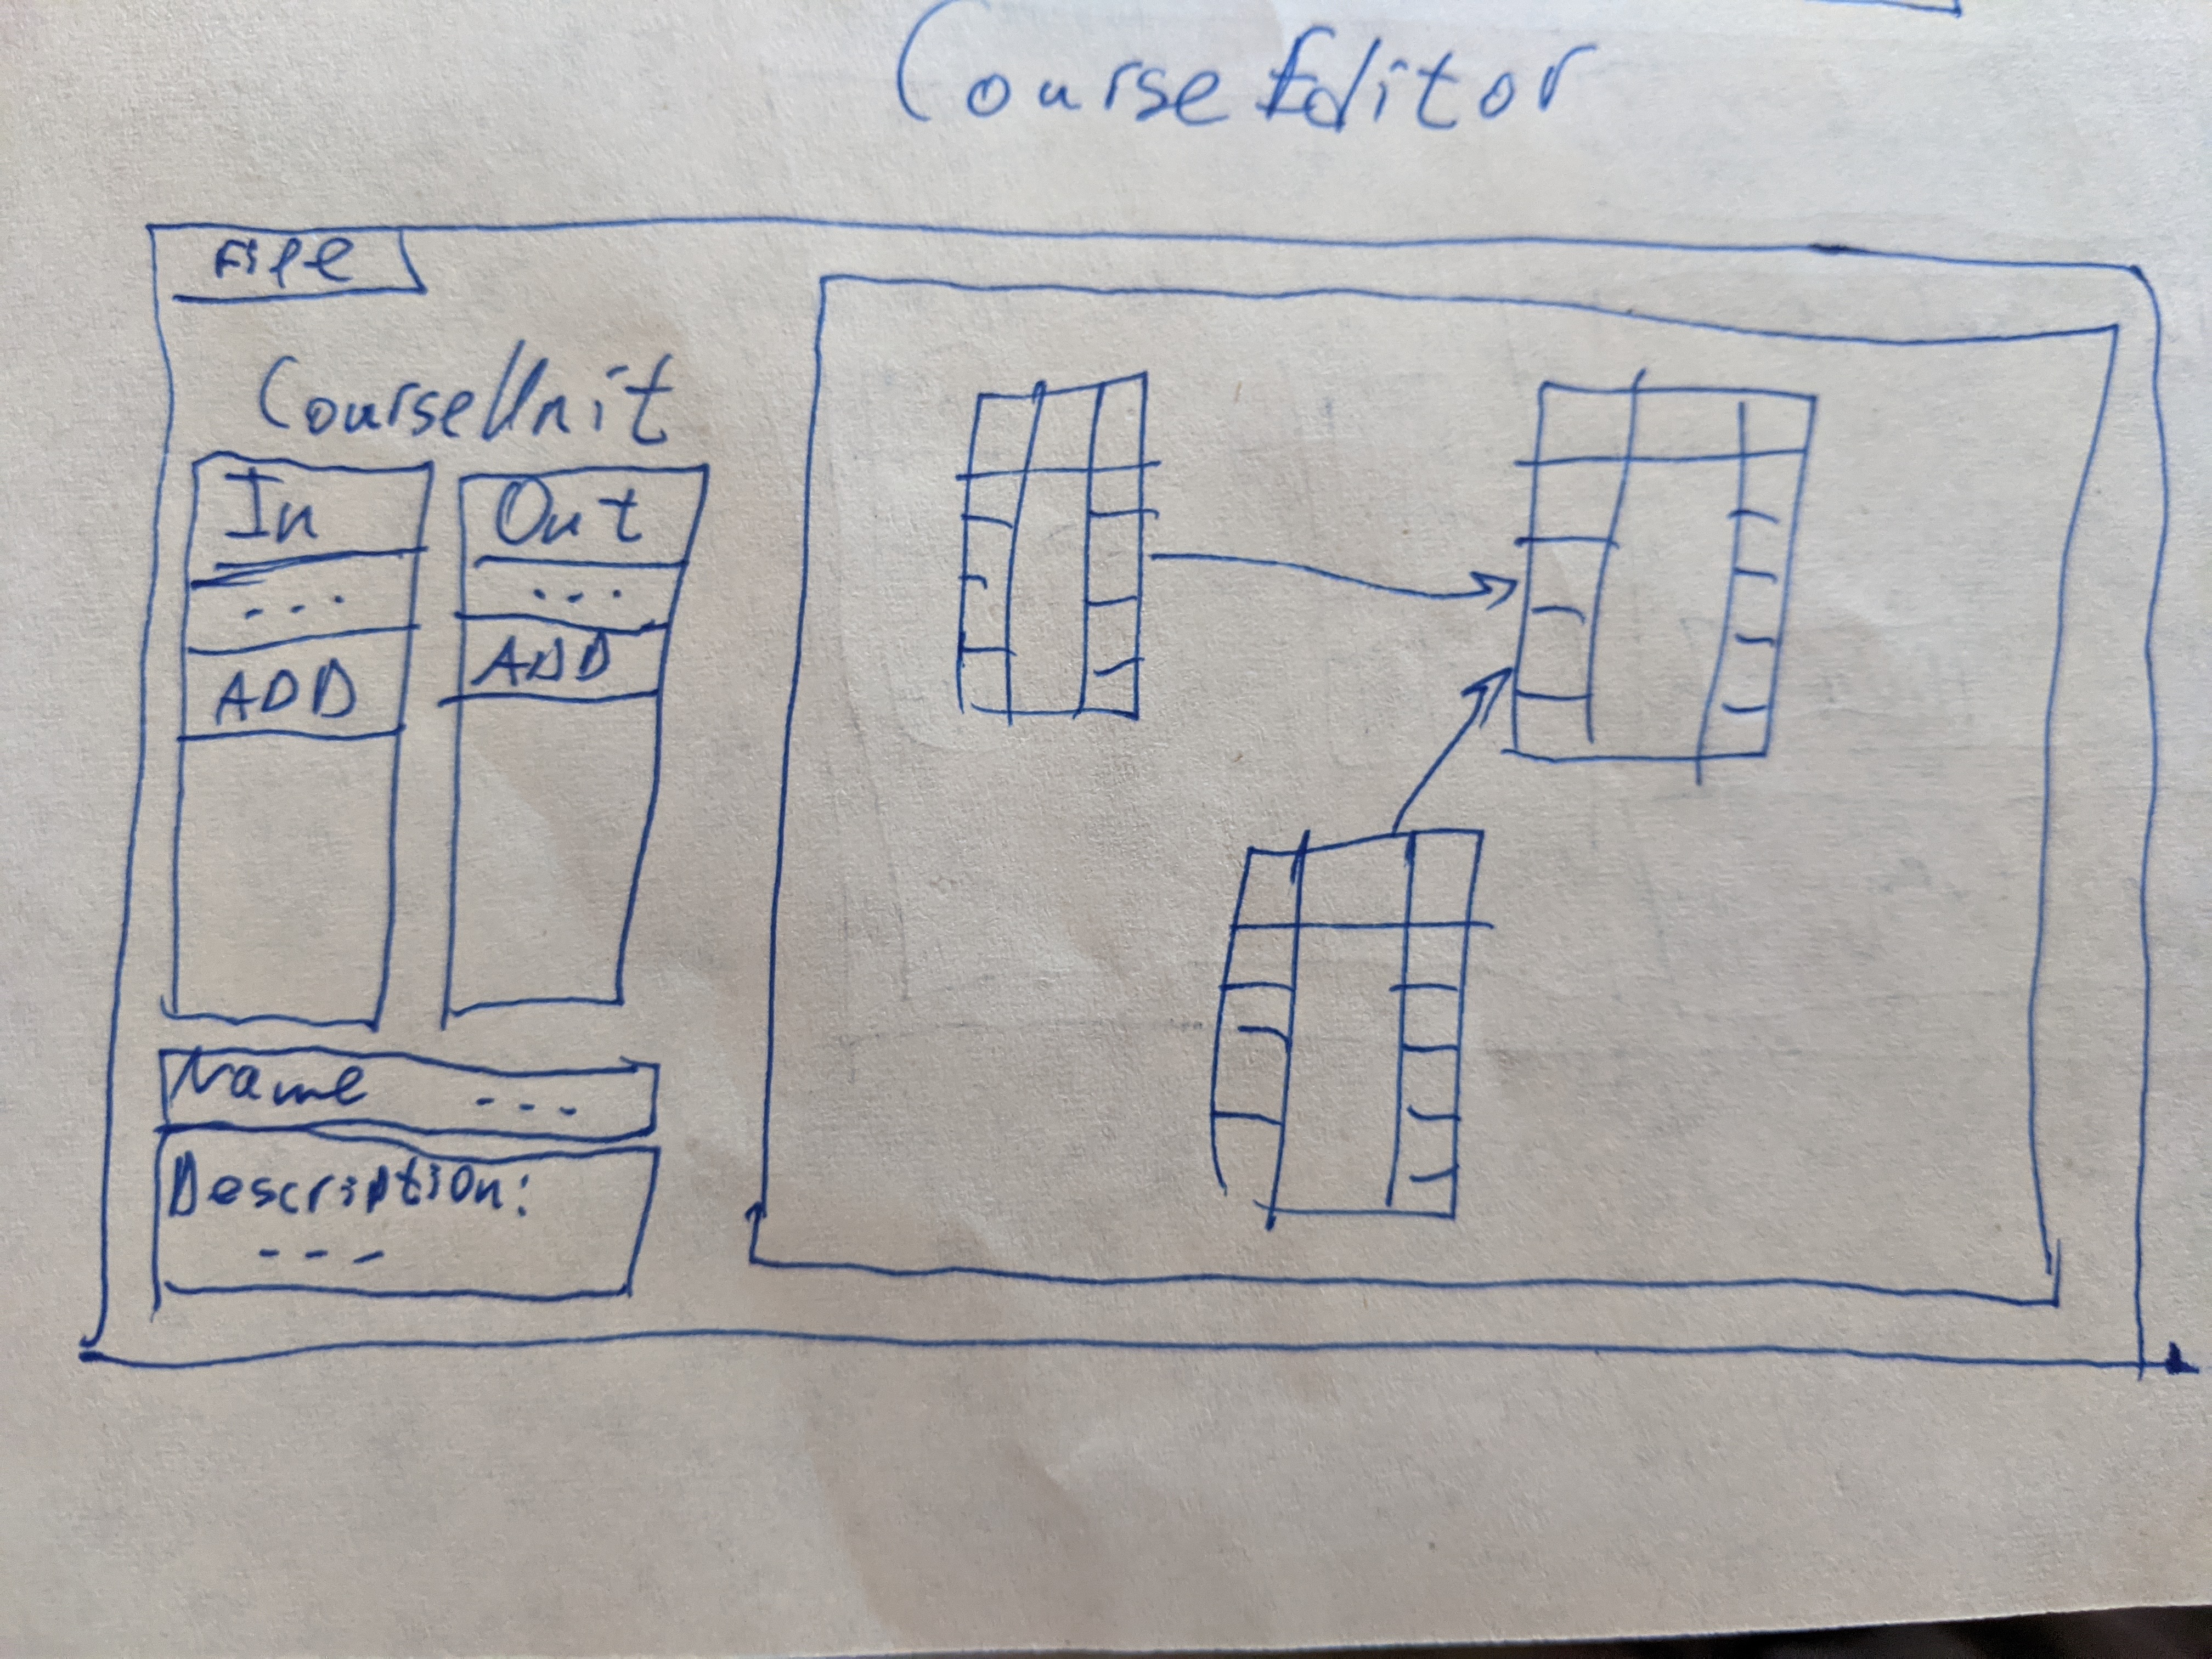 Course Editor
File
CourseUnit
In
Out
...
...
ADD
ADD
Name ---
Description:
---